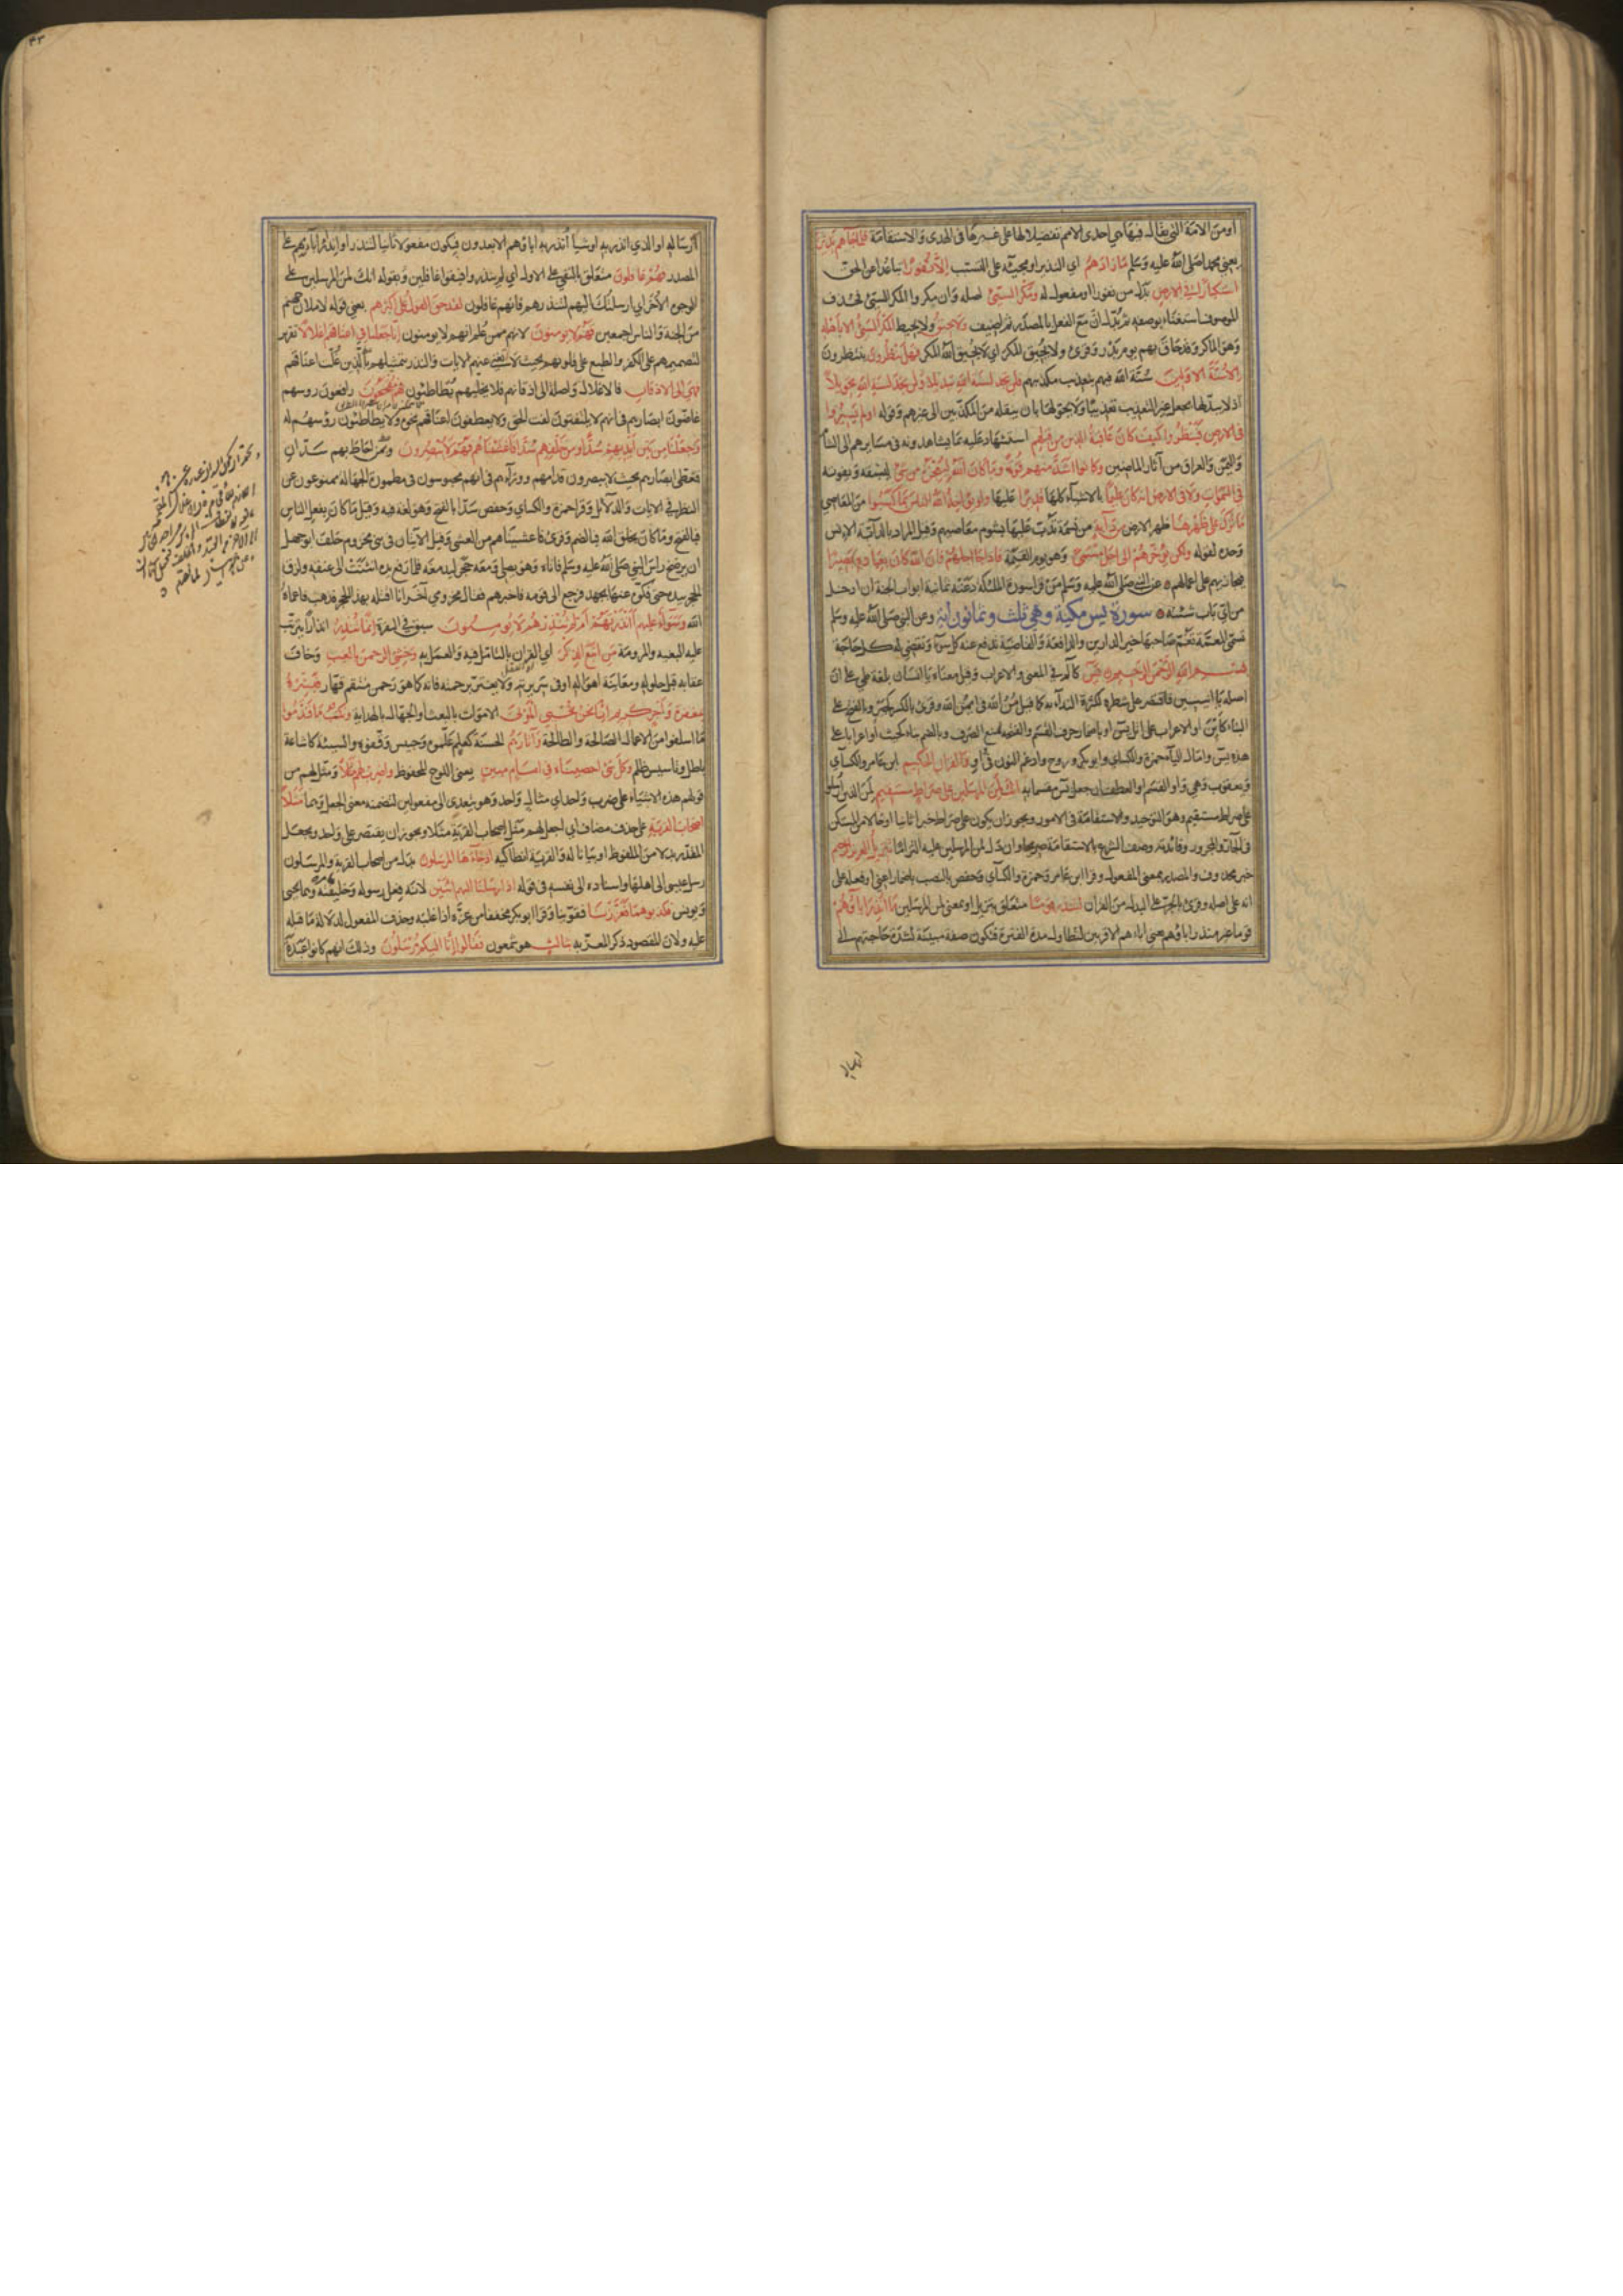 او من الامة التي يقال فيها هي احدى الامم تفضيلا لها على غيرها في الهدى والاستقامة فلما جاءهم نذير
يعني محمدا صلى الله عليه وسلم ما زادهم اي النذير او مجيئه على التسبب الا نفورا تباعدا عن الحق
استكبارا في الارض بدل من نفورا او مفعول له ومكر السيئ اصله وان مكروا المكر السيئ فحذف
الموصوف استغناء بوصفه ثم بدل ان مع الفعل بالمصدر ثم اضيف ولا يحيق ولا يحيط المكر السيئ الا باهله
وهو الماكر وقد حاق بهم يوم بدر وقرئ ولا يحيق المكر اي لا يحيق الله المكر فهل ينظرون ينتظرون
الا سنة الاولين سنة الله فيهم بتعذيب مكذبيهم فلن تجد لسنة الله تبديلا ولن تجد لسنة الله تحويلا
اذ لا يبدلها بجعل غير التعذيب تعذيبا ولا يحولها بان ينقله من المكذبين الى غيرهم وقوله اولم يسيروا
في الارض فينظروا كيف كان عاقبة الذين من قبلهم استشهاد عليه بما يشاهدونه في مسايرهم الى الشام
واليمن والعراق من آثار الماضين وكانوا اشد منهم قوة وما كان الله ليعجزه من شئ ليسبقه ويفوته
في السموات ولا في الارض انه كان عليما بالاشياء كلها قديرا عليها ولو يؤاخذ الله الناس بما كسبوا من المعاصي
ما ترك على ظهرها ظهر الارض من دابة من نسمة تدب عليها بشوم معاصيهم وقيل المراد بالدابة الانس
وحده لقوله ولكن يؤخرهم الى اجل مسمى وهو يوم القيمة فاذا جا اجلهم فان الله كان بعباده بصيرا
فيجازيهم على اعمالهم عن النبي صلى الله عليه وسلم من قرا سورة الملئكة دعته ثمانية ابواب الجنة ان ادخل
من اي باب شئت سورة يس مكية وهي ثلث وثمانون آية وعن النبي صلى الله عليه وسلم
تدعى المعمة تعم صاحبها خير الدارين والدافعة والقاضية تدفع عنه كل سوء وتقضي له كل حاجة
بسم الله الرحمن الرحيم يس كالم في المعنى والاعراب وقيل معناه يا انسان بلغة طي على ان
اصله يا انيسين فاقتصر على شطره لكثرة النداء به كما قيل من الله في ايمن الله وقرئ بالكسر كجير وبالفتح على
البناء كاين او الاعراب على اتل يس او باضمار حرف القسم والفتحة لمنع الصرف وبالضم بناء كحيث او اعرابا على
هذه يس وامال اليا حمزة والكسائي وابو بكر وروح وادغم النون في واو والقرآن الحكيم ابن عامر والكسائي
ويعقوب وهي واو القسم او العطف ان جعل يس مقسما به انك لمن المرسلين على صراط مستقيم لمن الذين ارسلوا
على صراط مستقيم وهو التوحيد والاستقامة في الامور ويجوز ان يكون على صراط خبرا ثانيا او حالا من المستكن
في الجار والمجرور وفائدته وصف الشرع بالاستقامة صريحا وان دل لمن المرسلين عليه التزاما تنزيل العزيز الرحيم
خبر محذوف والمصدر بمعنى المفعول وقرا ابن عامر وحمزة والكسائي وحفص بالنصب باضمار اعني او فعله على
انه على اصله وقرئ بالجر على البدل من القران لتنذر قوما متعلق بتنزيل او بمعنى لمن المرسلين ما انذر اباؤهم
قوما غير منذر اباؤهم يعني اباءهم الاقربين لتطاول مدة الفترة فتكون صفة مبينة لشدة حاجتهم الى
ارساله او الذي انذر به او شيا أنذر به اباؤهم الابعدون فيكون مفعولا ثانيا لتنذر او انذار ابائهم على
المصدر فهم غافلون متعلق بالنفي على الاول اي لم ينذروا فبقوا غافلين وبقوله انك لمن المرسلين على
الوجوه الأخر اي ارسلتك اليهم لتنذرهم فانهم غافلون لقد حق القول على اكثرهم يعني قوله لاملان جهنم
من الجنة والناس اجمعين فهم لا يومنون لانهم ممن علم انهم لا يومنون انا جعلنا في اعناقهم اغلالا تقرير
لتصميمهم على الكفر والطبع على قلوبهم بحيث لا تغني عنهم الايات والنذر بتمثيلهم بالذين غلت اعناقهم
فهي الى الاذقان فالاغلال واصلة الى اذقانهم فلا يخليهم يطاطئون فهم مقمحون رافعون روسهم
غاضون ابصارهم في انهم لا يلتفتون لفت الحق ولا يعطفون اعناقهم نحوه ولا يطاطئون رؤسهم له
وجعلنا من بين ايديهم سدا ومن خلفهم سدا فاغشيناهم فهم لا يبصرون وبمن احاط بهم سدان
فغطى ابصارهم بحيث لا يبصرون قدامهم ووراءهم في انهم محبوسون في مطمورة الجهالة ممنوعون عن
النظر في الايات والدلائل وقرا حمزة والكسائي وحفص سدا بالفتح وهو لغة فيه وقيل ما كان بفعل الناس
فبالفتح وما كان بخلق الله فبالضم وقرئ فاعشيناهم من العشى وقيل الآيتان في بني مخزوم حلف ابو جهل
ان يرضخ راس النبي صلى الله عليه وسلم فاتاه وهو يصلي ومعه حجر ليدمغه فلما رفع يده انثنت الى عنقه ولزق
الحجر بيده حتى فكوه عنها بجهد فرجع الى قومه فاخبرهم فقال مخزومي آخر انا اقتله بهذا الحجر فذهب فاعماه
الله وسواء عليهم أانذرتهم ام لم تنذرهم لا يومنون سبق في البقرة انما تنذر انذارا يترتب
عليه البغية والمرومة من اتبع الذكر اي القران بالتامل فيه والعمل به وخشي الرحمن بالغيب وخاف
عقابه قبل حلوله ومعاينة اهواله او في سريرته ولا يغتر برحمته فانه كما هو رحمن منتقم قهار فبشره
بمغفرة واجر كريم انا نحن نحيي الموتى الاموات بالبعث او الجهال بالهداية ونكتب ما قدموا
ما اسلفوا من الاعمال الصالحة والطالحة وآثارهم الحسنة كعلم علموه وحبيس وقفوه والسيئة كاشاعة
باطل وتاسيس ظلم وكل شئ احصيناه في امام مبين يعني اللوح المحفوظ واضرب لهم مثلا ومثل لهم من
قولهم هذه الاشياء على ضرب واحد اي مثال واحد وهو يتعدى الى مفعولين لتضمنه معنى الجعل وهما مثلا
اصحاب القرية على حذف مضاف اي اجعل لهم مثل اصحاب القرية مثلا ويجوز ان يقتصر على واحد ويجعل
المقدر بدلا من الملفوظ او بيانا له والقرية انطاكية اذ جاءها المرسلون بدل من اصحاب القرية والمرسلون
رسل عيسى الى اهلها واسناده الى نفسه في قوله اذ ارسلنا اليهم اثنين لانه فعل رسوله وخليفته وهما يحيى
ويونس فكذبوهما فعززنا فقوينا وقرا ابو بكر مخففا من عزه اذا غلبه وحذف المفعول لدلالة ما قبله
عليه ولان المقصود ذكر المعزز به بثالث هو شمعون فقالوا انا اليكم مرسلون وذلك انهم كانوا عبدة